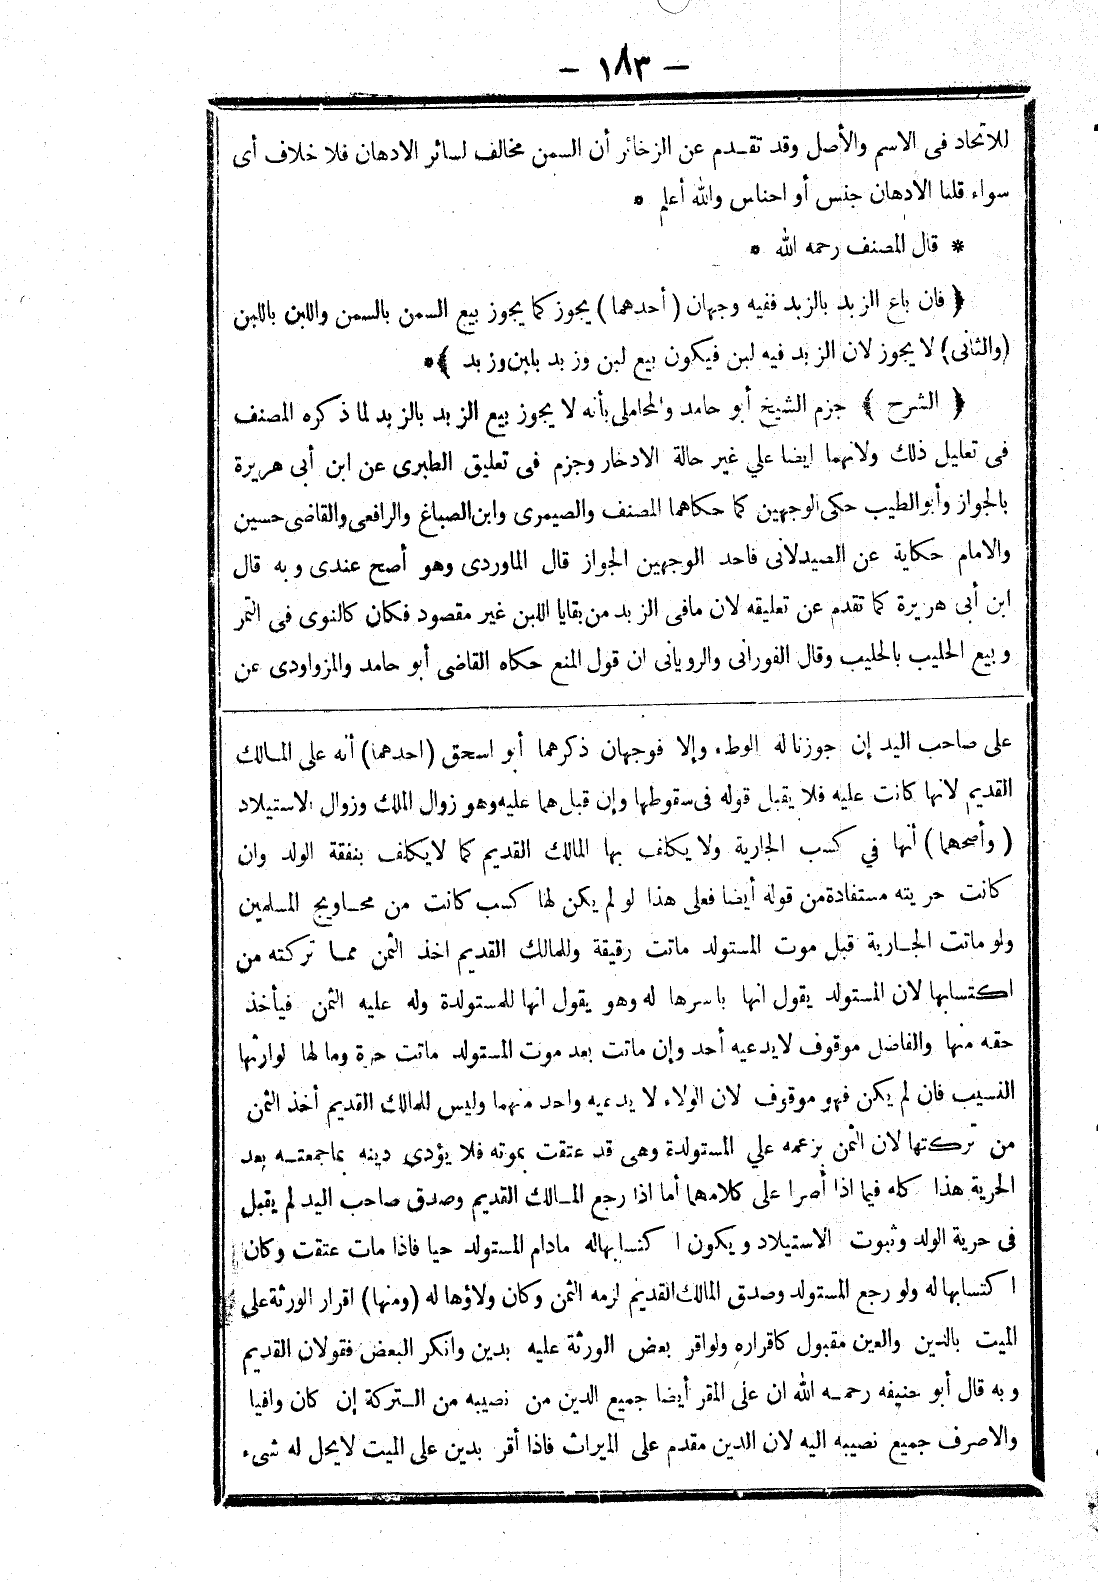 — ١٨٣ —
للاتحاد فى الاسم والأصل وقد تقـدم عن الزخائر أن السمن مخالف لسائر الادهان فلا خلاف أى
سواء قلنا الادهان جنس أو احناس والله أعلم *
* قال المصنف رحمه الله *
﴿ فان باع الزبد بالزبد ففيه وجهان (أحدهما) يجوز كما يجوز بيع السمن بالسمن واللبن باللبن
(والثانى) لا يجوز لان الزبد فيه لبن فيكون بيع لبن وزبد بلبن وزبد ﴾*
﴿ الشرح ﴾ جزم الشيخ أبو حامد والمحاملى بأنه لا يجوز بيع الزبد بالزبد لما ذكره المصنف
فى تعليل ذلك ولانهما ايضا علي غير حالة الادخار وجزم فى تعليق الطبرى عن ابن أبى هريرة
بالجواز وأبو الطيب حكى الوجهين كما حكاهما المصنف والصيمرى وابن الصباغ والرافعى والقاضى حسين
والامام حكاية عن الصيدلانى فاحد الوجهين الجواز قال الماوردى وهو أصح عندى وبه قال
ابن أبى هريرة كما تقدم عن تعليقه لان مافى الزبد من بقايا اللبن غير مقصود فكان كالنوى فى التمر
وبيع الحليب بالحليب وقال الفورانى والرويانى ان قول المنع حكاه القاضى أبو حامد والمزواودى عن
على صاحب اليد إن جوزنا له الوطء وإلا فوجهان ذكرهما أبو اسحق (احدهما) أنه على المـالك
القديم لانها كانت عليه فلا يقبل قوله فى سقوطها وإن قبل هما عليه وهو زوال الملك وزوال الاستيلاد
(وأصحهما) أنها في كسب الجارية ولا يكلف بها المالك القديم كما لايكلف بنفقة الولد وان
كانت حريته مستفادة من قوله أيضا فعلى هذا لو لم يكن لها كسب كانت من محـاويج المسلمين
ولو ماتت الجـارية قبل موت المستولد ماتت رقيقة وللمالك القديم اخذ الثمن ممـا تركته من
اكتسابها لان المستولد يقول انها باسرها له وهو يقول انها للمستولدة وله عليه الثمن فيأخذ
حقه منها والفاضل موقوف لايدعيه أحد وإن ماتت بعد موت المستولد ماتت حرة ومالها لوارثها
النسيب فان لم يكن فهو موقوف لان الولاء لا يدعيه واحد منهما وليس للمالك القديم أخذ الثمن
من تركتها لان الثمن بزعمه علي المستولدة وهى قد عتقت بموته فلا يؤدى دينه بماجمعتـه بعد
الحرية هذا كله فيما اذا أصرا على كلامهما أما اذا رجع المـالك القديم وصدق صاحب اليد لم يقبل
فى حرية الولد وثبوت الاستيلاد ويكون اكتسابها له مادام المستولد حيا فاذا مات عتقت وكان
اكتسابها له ولو رجع المستولد وصدق المالك القديم لزمه الثمن وكان ولاؤها له (ومنها) اقرار الورثة على
الميت بالدين والعين مقبول كاقراره ولو اقر بعض الورثة عليه بدين وانكر البعض فقولان القديم
وبه قال أبو حنيفه رحمـه الله ان على المقر أيضا جميع الدين من نصيبه من الـتركة إن كان وافيا
والاصرف جميع نصيبه اليه لان الدين مقدم على الميراث فاذا أقر بدين على الميت لايحل له شىء